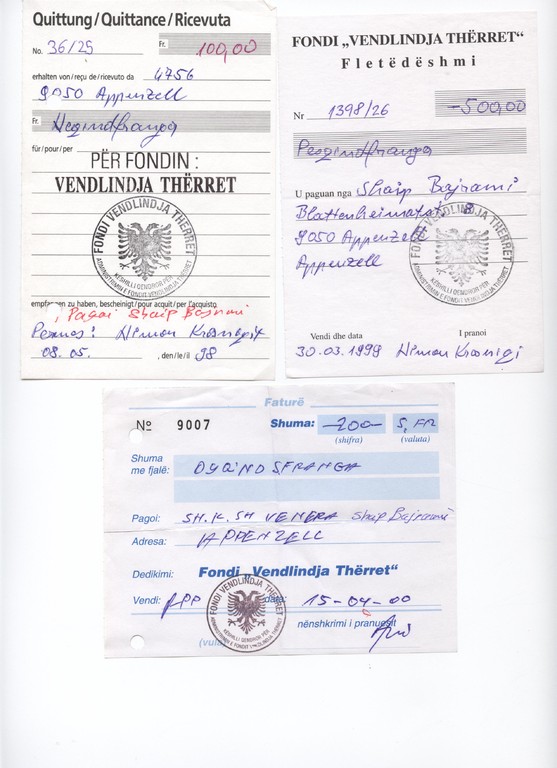 Quittung/Quittance/Ricevuta
No. 36/25 Fr. 100,00
erhalten von/reçu de/ricevuto da 4756
9050 Appenzell
Fr. Heqindfranga
für/pour/per
PËR FONDIN:
VENDLINDJA THËRRET
FONDI VENDLINDJA THËRRET
KËSHILLI QENDROR PËR
ADMINISTRIMIN E FONDIT VENDLINDJA THËRRET
empfangen zu haben, bescheinigt/pour acquit/per l'acquisto
Pagoi Shaip Bajrami
Pranoi: Himon Krasniqi
08. 05. , den/le/il 98
FONDI „VENDLINDJA THËRRET“
Fletëdëshmi
Nr 1398/26 -500,00
Pesqindfranga
U paguan nga Shaip Bajrami
Blattenheimatstr 8
9050 Appenzell
Appenzell
FONDI VENDLINDJA THËRRET
KËSHILLI QENDROR PËR
ADMINISTRIMIN E FONDIT VENDLINDJA THËRRET
Vendi dhe data I pranoi
30.03.1999 Himon Krasniqi
Faturë
№ 9007 Shuma: -200- S, FR
(shifra) (valuta)
Shuma
me fjalë: DYQIND SFRANGA
Pagoi: SH.K.SH VENERA Shaip Bajrami
Adresa: APPENZELL
Dedikimi: Fondi „Vendlindja Thërret“
Vendi: APP 15-04-00
nënshkrimi i pranuesit
FONDI VENDLINDJA THËRRET
KËSHILLI QENDROR PËR
ADMINISTRIMIN E FONDIT VENDLINDJA THËRRET